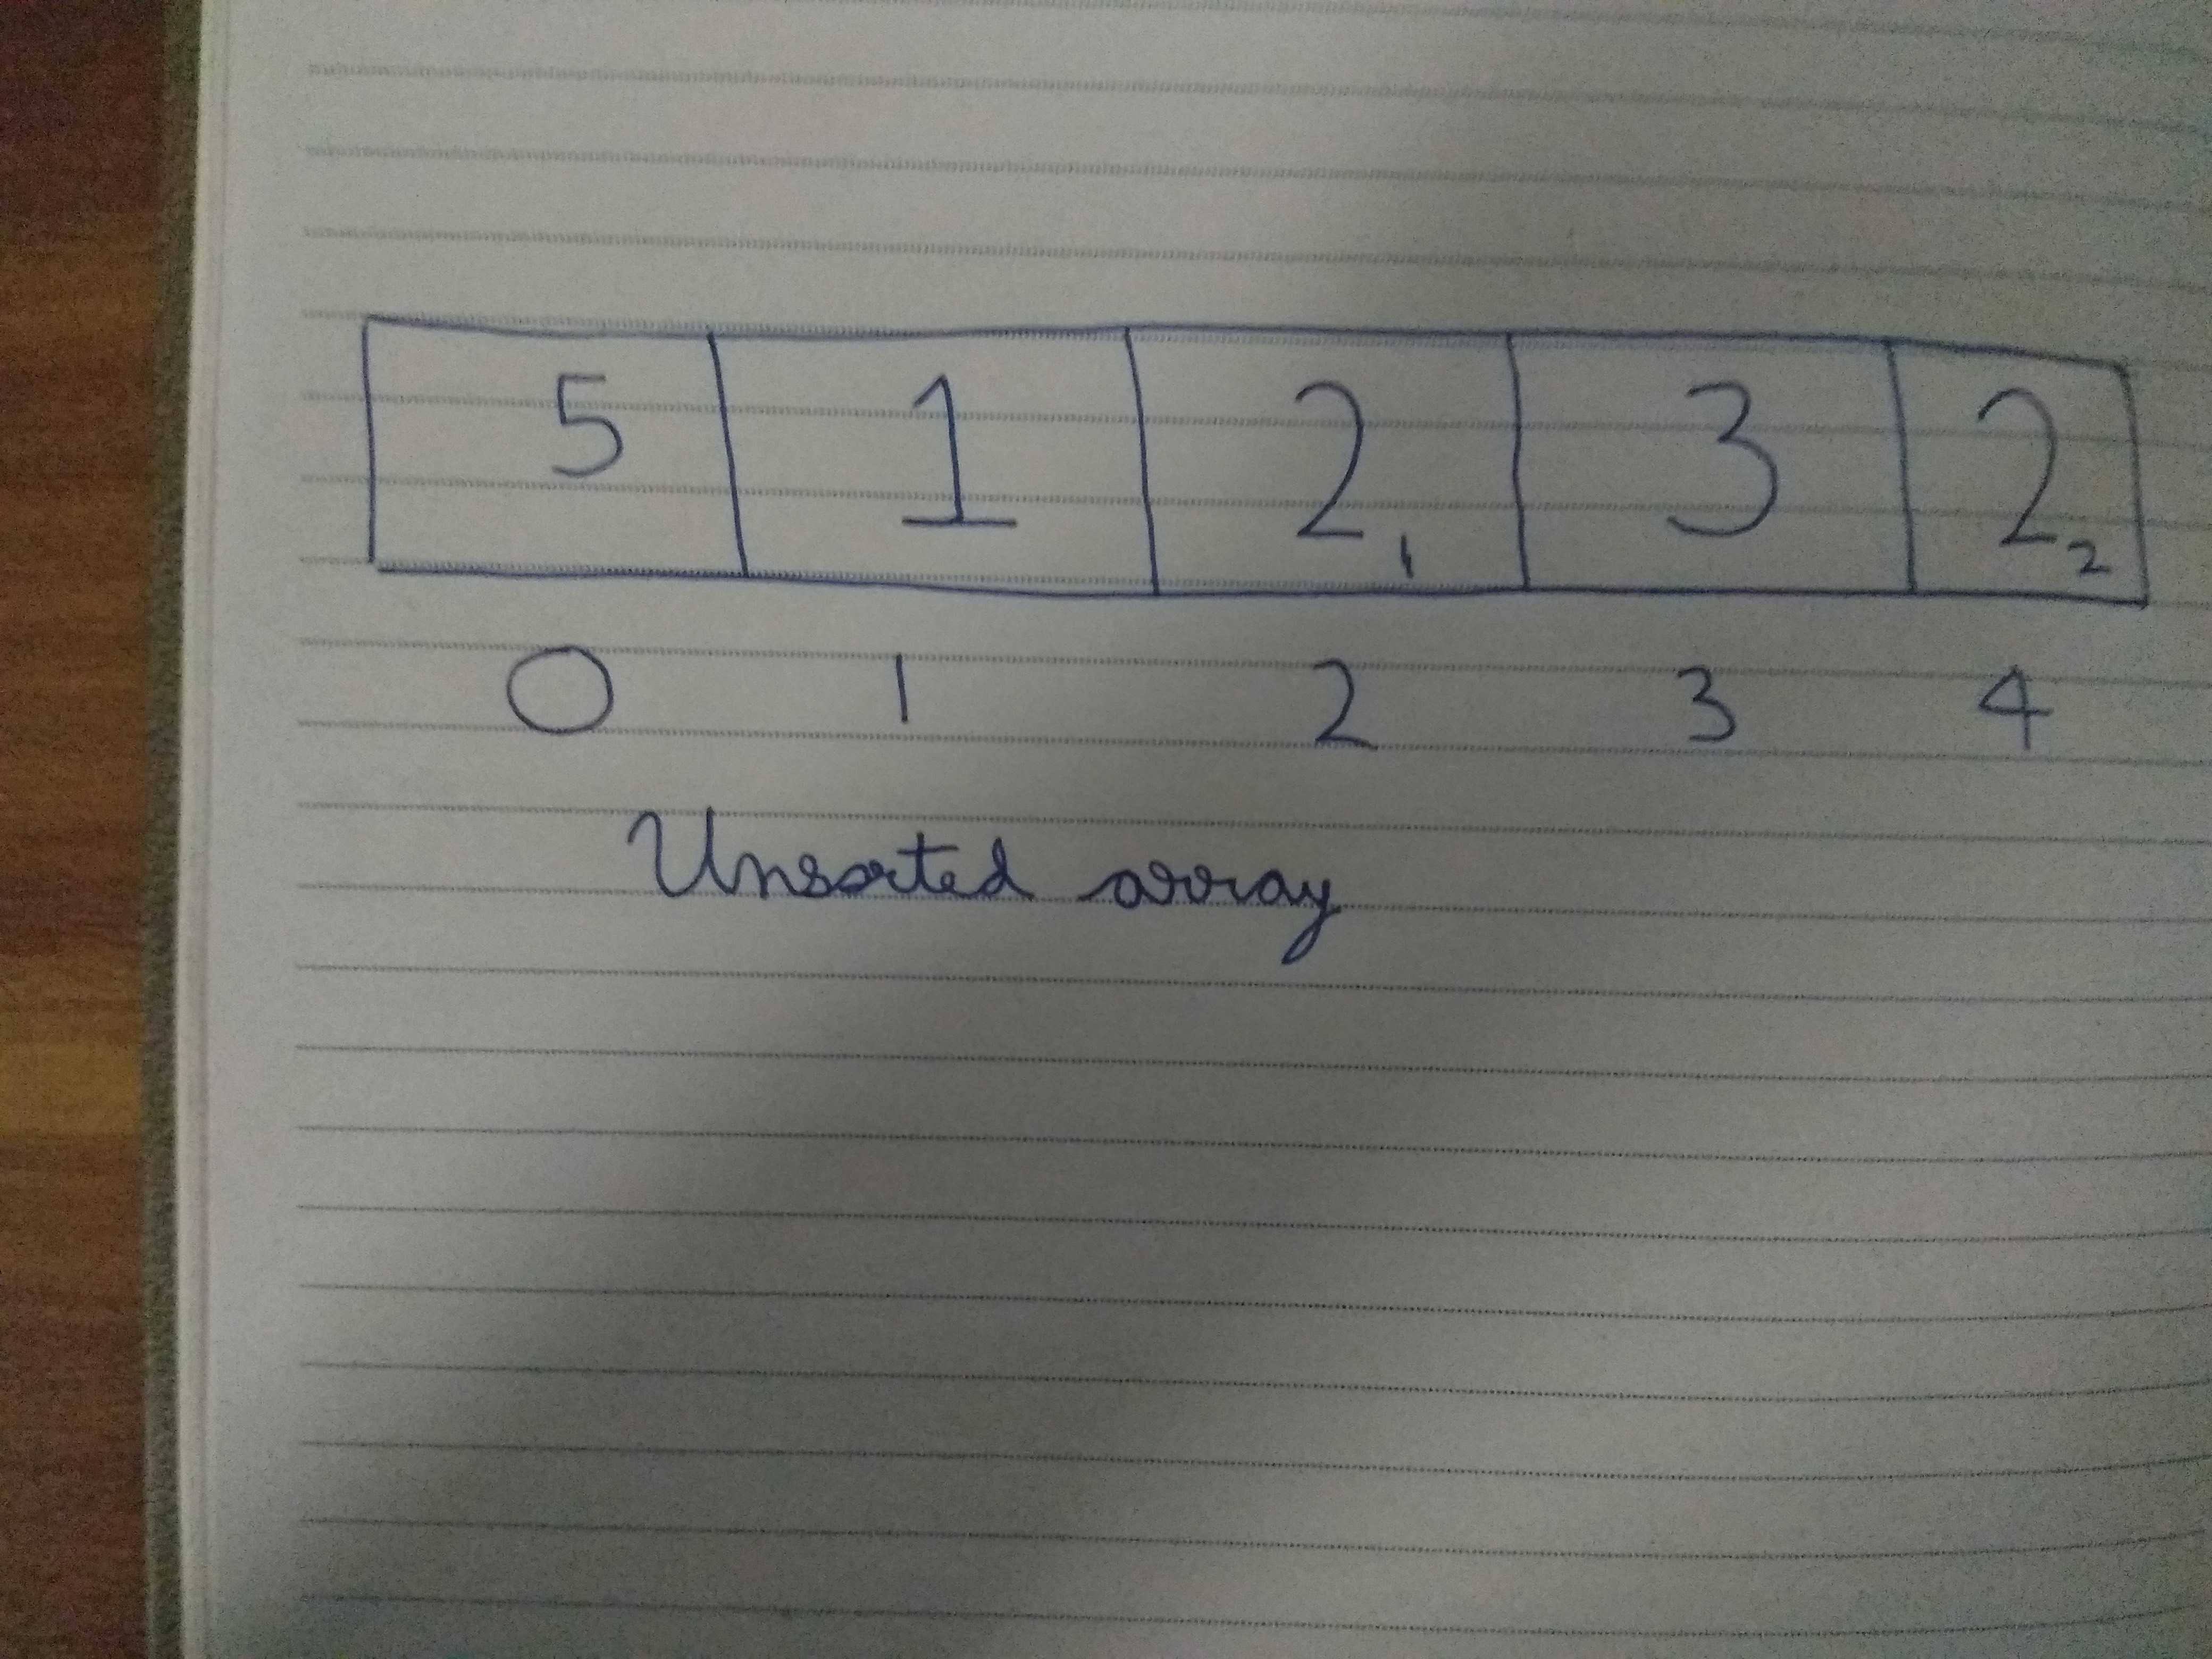 5 1 2₁ 3 2₂
0 1 2 3 4
Unsorted array